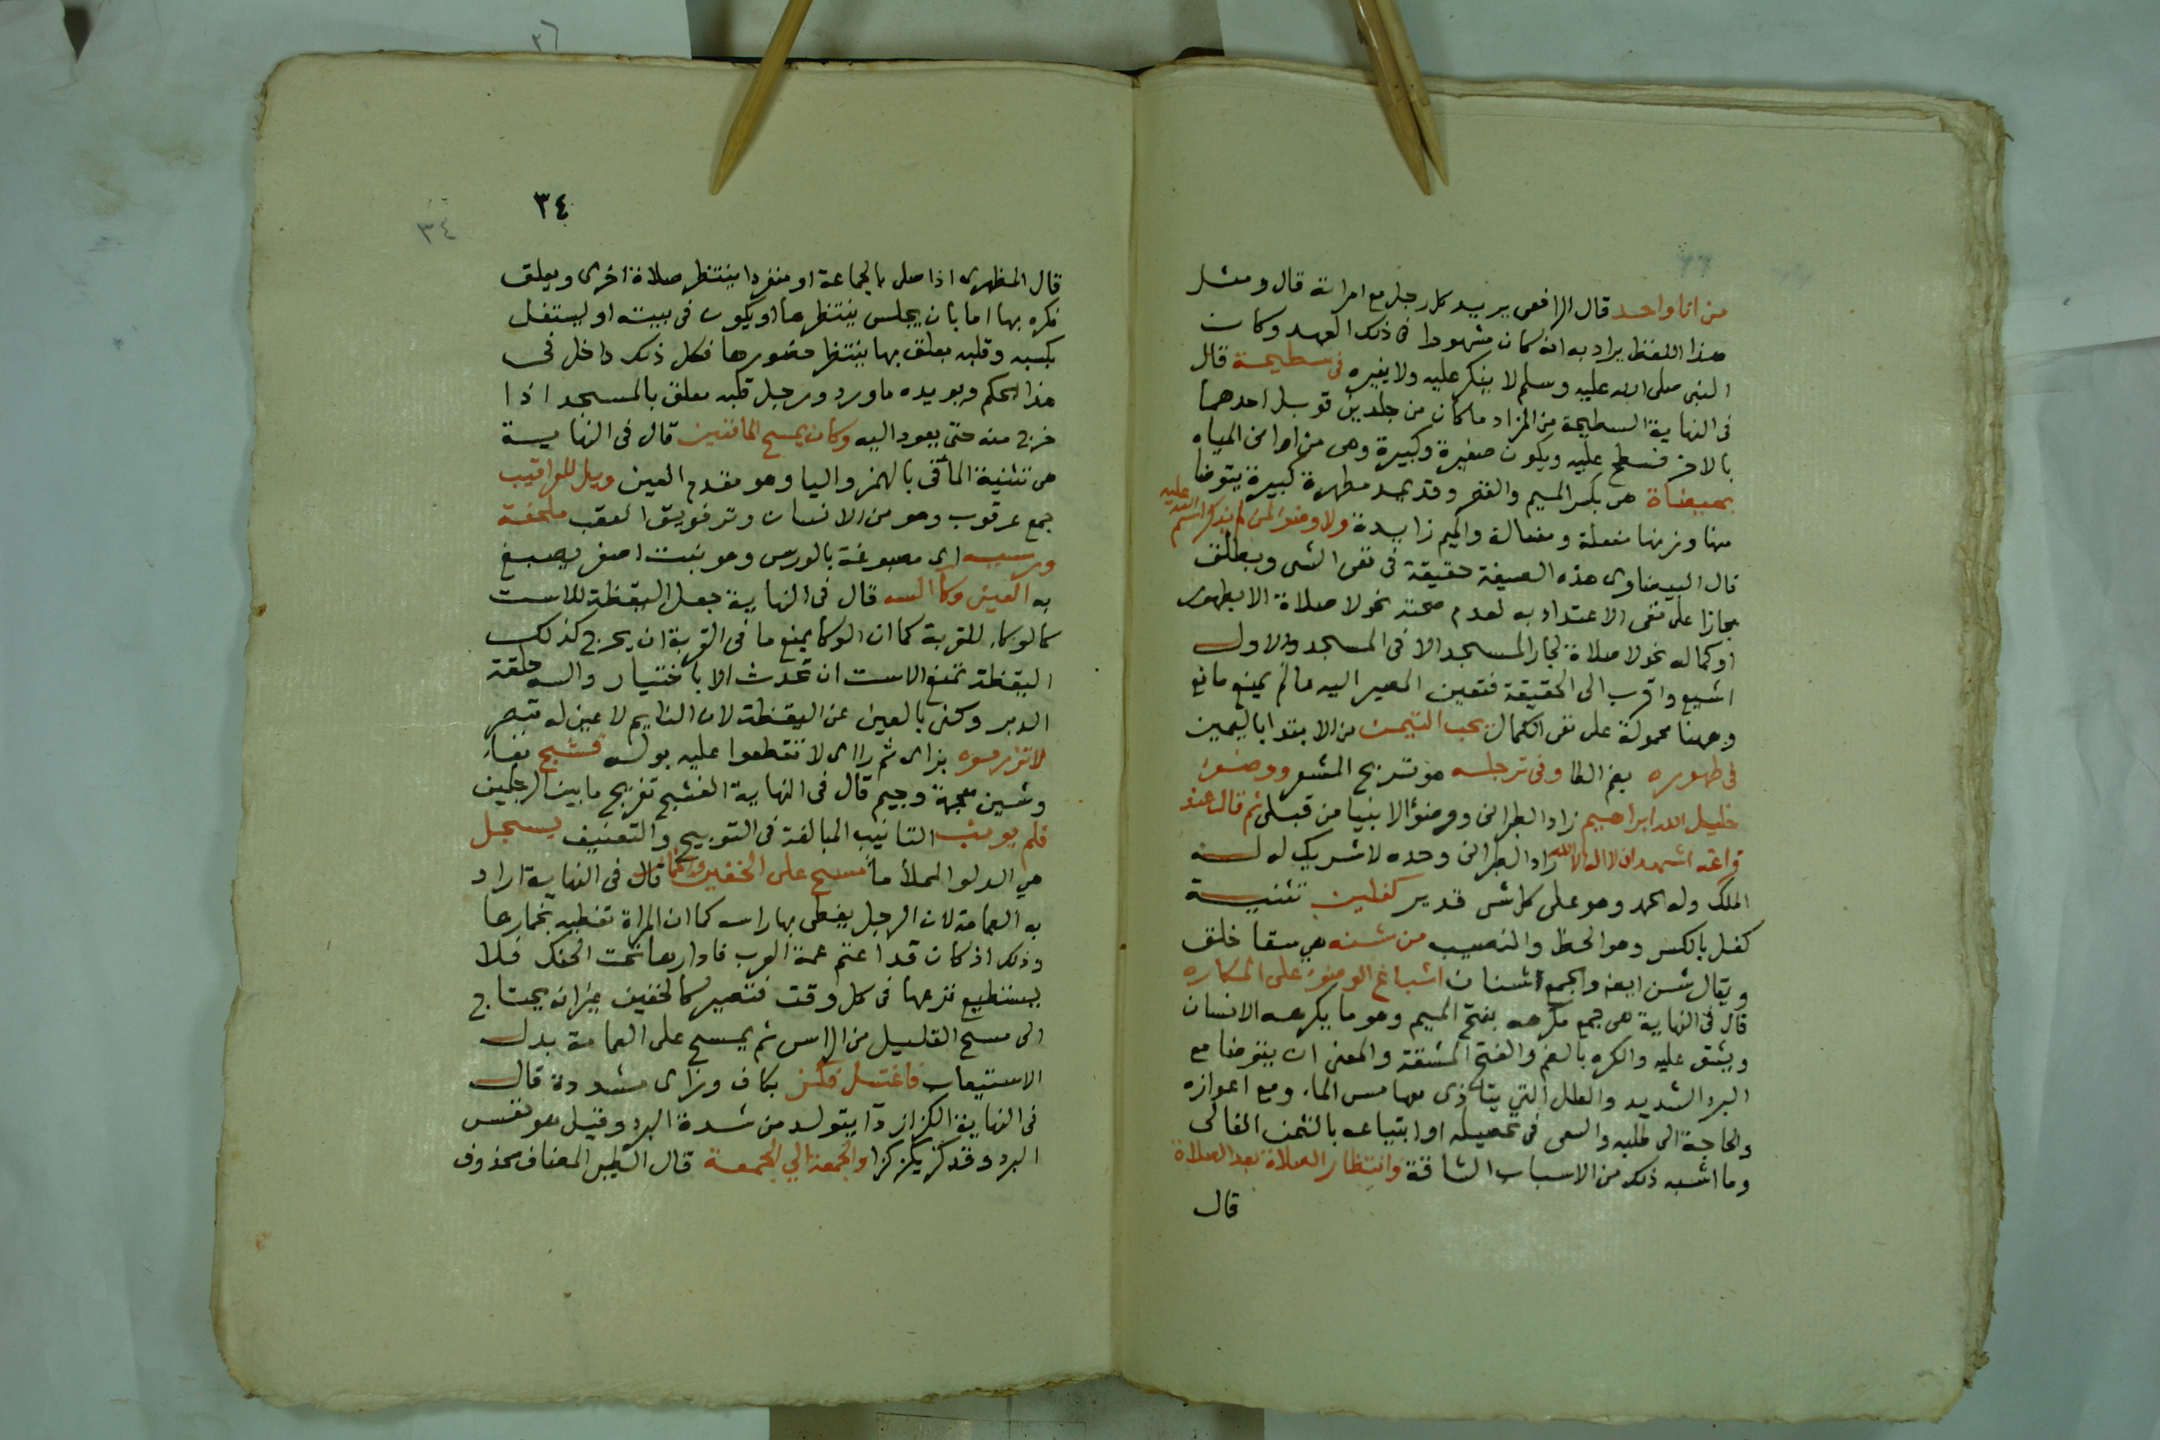 من انا واحد قال الرافعى يريد كل رجل مع امراته قال ومثل
هذا اللفظ يراد به انه كان مشهورا فى ذلك العهد وكان
النبى صلى الله عليه وسلم لا ينكر عليه ولا يغيره فى سطيحة قال
فى النهاية السطيحة من المزاد ما كان من جلدين قوبل احدهما
بالاخر فسطح عليه ويكون صغيرة وكبيرة وهى من اوانى المياه
بميضاة هى بكسر الميم والقصر وقد يمد مطهرة كبيرة يتوضا
منها وزنها مفعلة ومفعالة والميم زايدة ولا وضوء لمن لم يذكر اسم الله عليه
قال البيضاوى هذه الصيغة حقيقة فى نفى الشى ويطلق
مجازا على نفى الاعتداد به لعدم صحته نحو لا صلاة الا بطهور
او كماله نحو لا صلاة لجار المسجد الا فى المسجد والاول
اشيع واقرب الى الحقيقة فتعين المصير اليه ما لم يمنع مانع
وههنا محمولة على نفى الكمال يحب التيمن من الابتدا باليمين
فى طهوره بضم الطا وفى ترجله هو تسريح الشعر ووضوء
خليل الله ابراهيم زاد الطبرانى ووضوء الانبيا من قبلى ثم قال عند
فراغه اشهد ان لا اله الا الله زاد الطبرانى وحده لا شريك له له
الملك وله الحمد وهو على كل شى قدير كفلين تثنية
كفل بالكسر وهو الحظ والنصيب من شنه هى سقا خلق
ويقال شن ايضا والجمع اشنان اسباغ الوضوء على المكاره
قال فى النهاية هى جمع مكره بفتح الميم وهو ما يكرهه الانسان
ويشق عليه والكره بالضم والفتح المشقة والمعنى ان يتوضا مع
البرد الشديد والعلل التى يتاذى معها مس الماء ومع اعوازه
والحاجة الى طلبه والسعى فى تحصيله او ابتياعه بالثمن الغالى
وما اشبه ذلك من الاسباب الشاقة وانتظار الصلاة بعد الصلاة
قال
٣٤
٣٤
٣٦
قال المظهرى اذا صلى بالجماعة او منفردا ينتظر صلاة اخرى ويعلق
فكره بها اما بان يجلس ينتظرها او يكون فى بيته او يشتغل
بكسبه وقلبه معلق بها ينتظر حضورها فكل ذلك داخل فى
هذا الحكم ويويده ما ورد ورجل قلبه معلق بالمسجد اذا
خرج منه حتى يعود اليه وكان يمسح الماقيين قال فى النهاية
هى تثنية المأقى بالهمز واليا وهو مقدم العين ويل للعراقيب
جمع عرقوب وهو من الانسان وتر فويق العقب ملحفة
ورسيه اى مصبوغة بالورس وهو نبت اصفر يصبغ
به العين وكا السه قال فى النهاية جعل اليقظة للاست
كالوكاء للقربة كما ان الوكا يمنع ما فى القربة ان يخرج كذلك
اليقظة تمنع الاست ان تحدث الا باختيار والسه حلقة
الدبر وكنى بالعين عن اليقظة لان النايم لا عين له تبصر
لا تزرموه بزاى ثم را اى لا تقطعوا عليه بوله فشج بفاء
وشين معجمة وجيم قال فى النهاية الفشج تفريج ما بين الرجلين
فلم يونب التانيب المبالغة فى التوبيخ والتعنيف بسجل
هى الدلو الملأ ماً مسح على الخفين والخمار قال فى النهاية اراد
به العمامة لان الرجل يغطى بها راسه كما ان المراة تغطيه بخمارها
وذلك اذ كان قد اعتم عمة العرب فادارها تحت الحنك فلا
يستطيع نزعها فى كل وقت فتصير كالخفين غير انه يحتاج
الى مسح القليل من الراس ثم يمسح على العمامة بدل
الاستيعاب فاغتسل فكز بكاف وزاى مشددة قال
فى النهاية الكزاز دآ يتولد من شدة البرد وقيل هو نفس
البرد وقد كز يكز كزا والجمعة الى الجمعة قال الطيبى المضاف محذوف